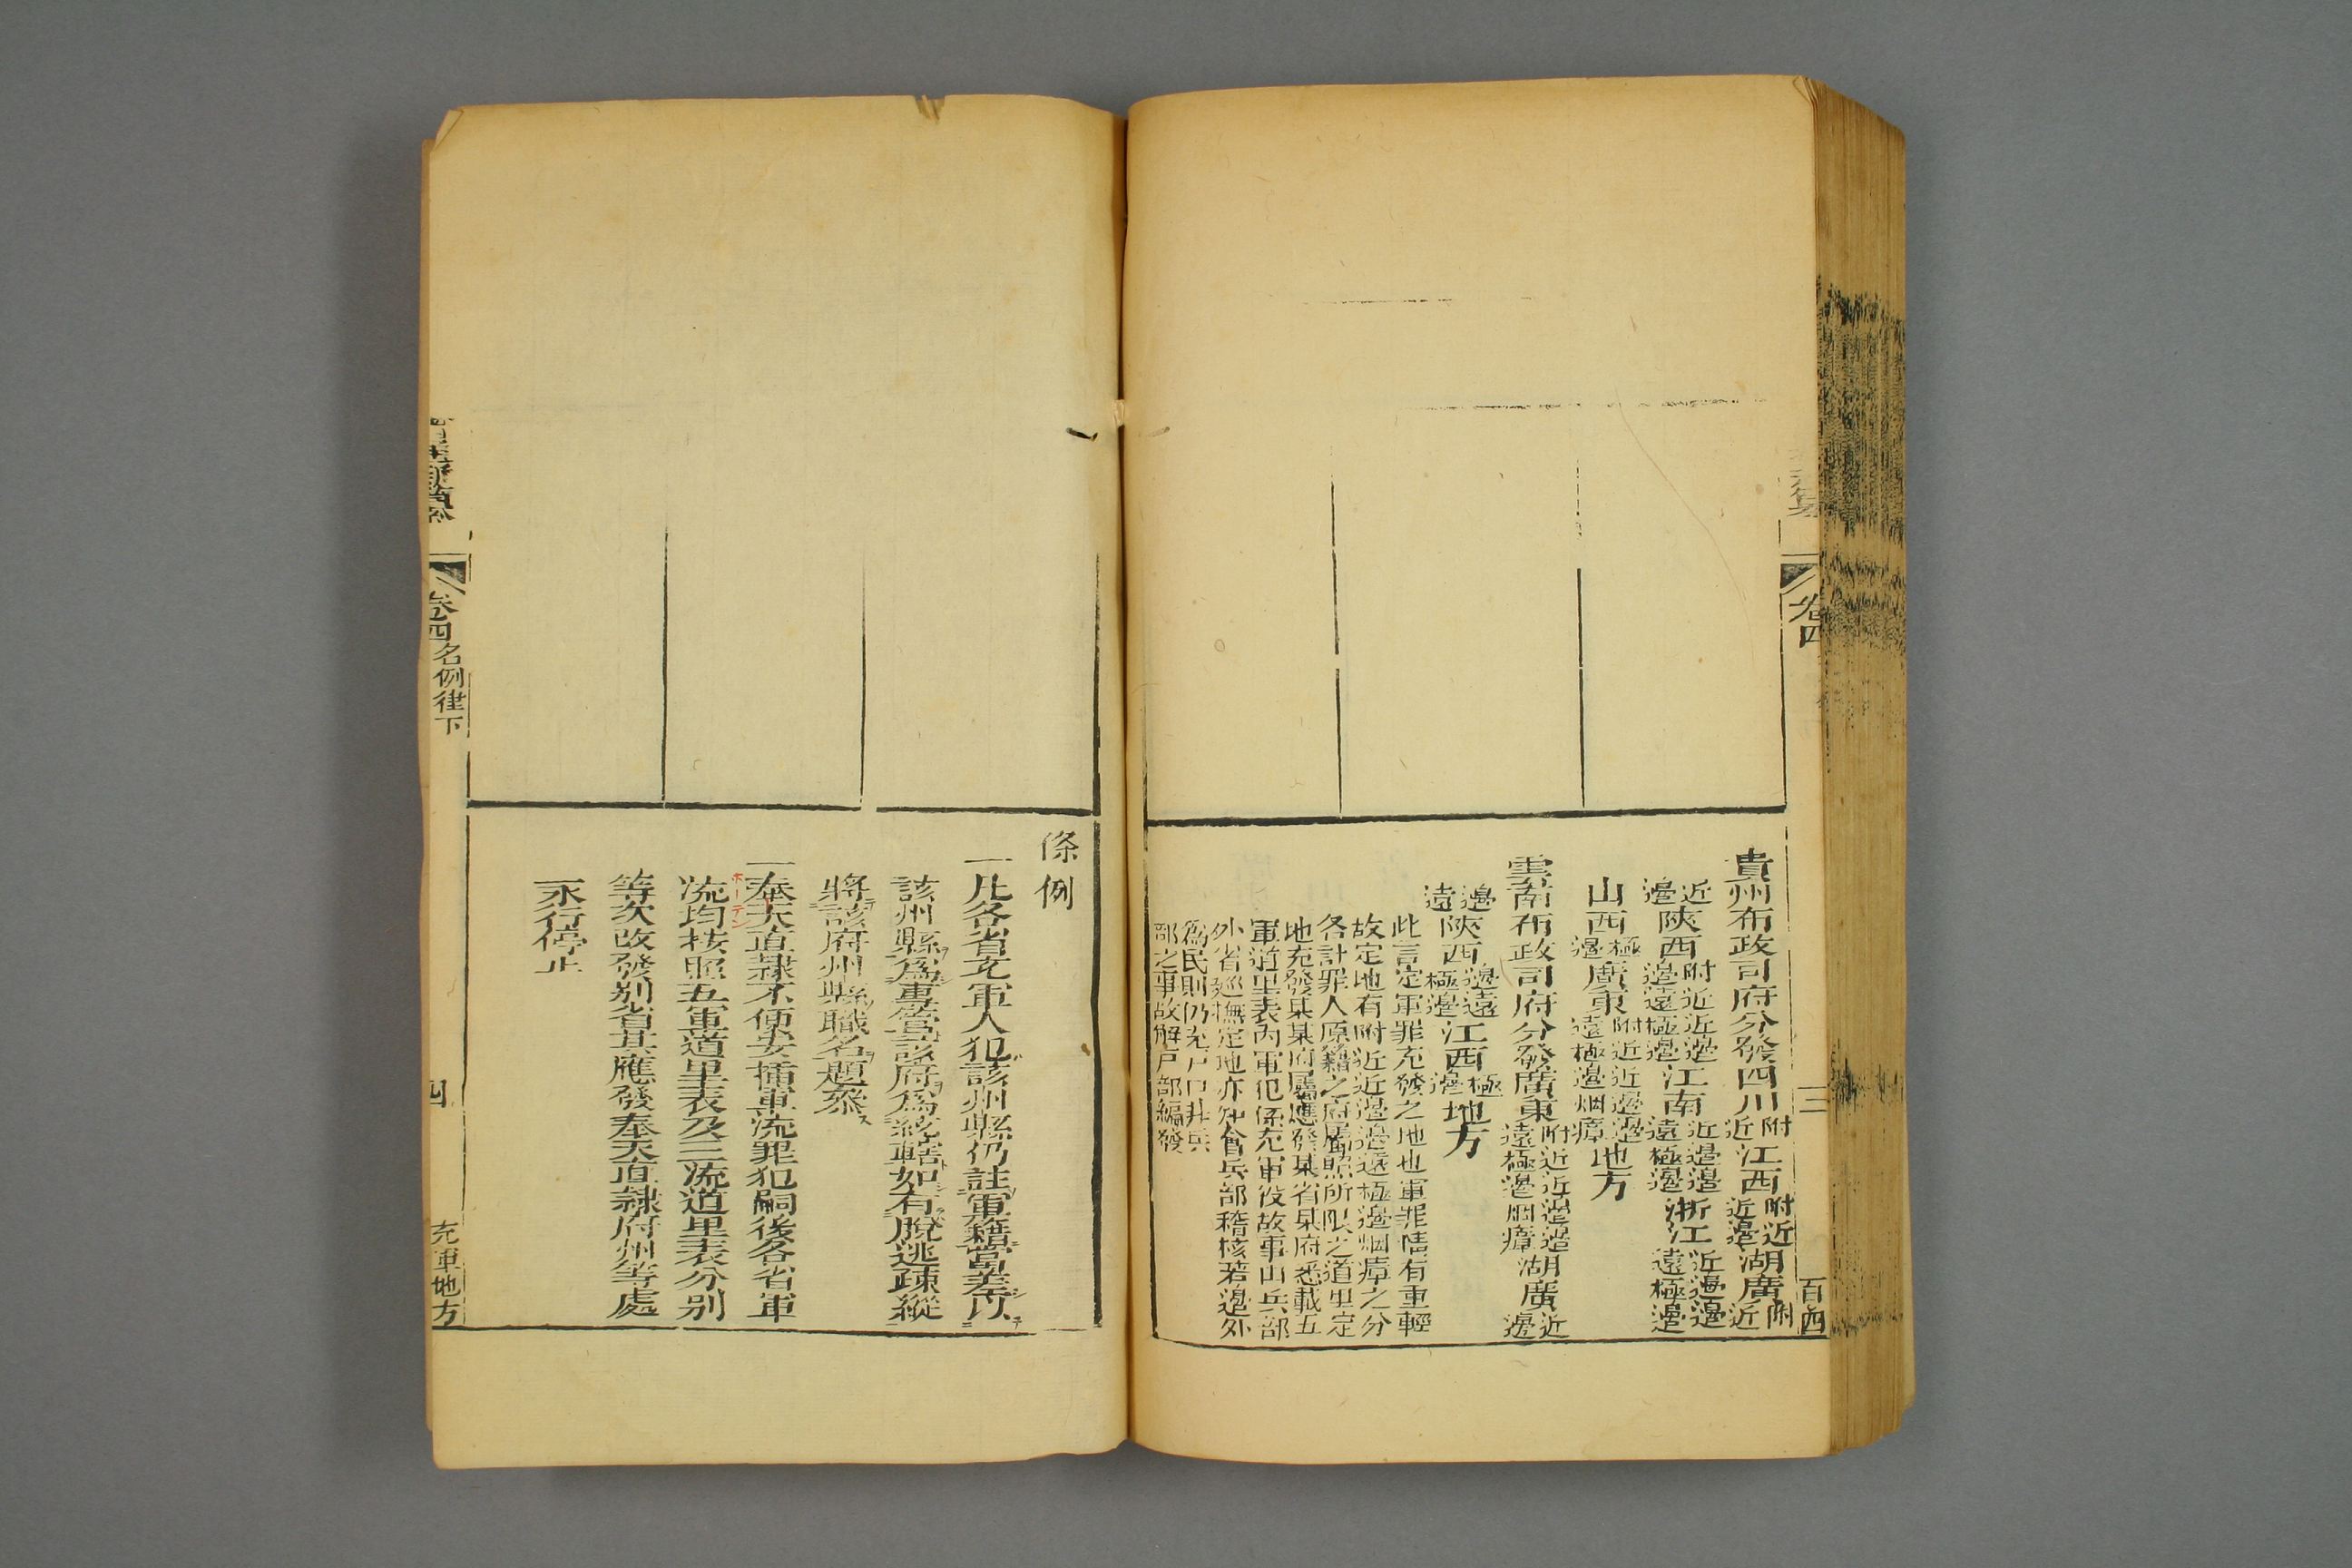 貴州布政司府分發四川附近江西附近近邊湖廣附近
近邊陝西附近近邊邊遠極邊江南近邊邊遠極邊浙江近邊邊遠極邊
山西極邊廣東附近近邊邊遠極邊烟瘴地方
雲南布政司府分發廣東附近近邊邊遠極邊烟瘴湖廣近邊
邊遠陝西邊遠極邊江西極邊地方
此言定軍罪充發之地也軍罪情有重輕
故定地有附近近邊邊遠極邊烟瘴之分
各計罪人原籍之府屬照所限之道里定
地充發某某府屬應發某省某府悉載五
軍道里表內軍犯係充軍役故事由兵部
外省巡撫定地亦知會兵部稽核若邊外
爲民則仍充戶口非兵
部之事故解戶部編發
卷四
三
百四
條例
一凡各省充軍人犯該州縣仍註軍籍當差以
該州縣爲專管該府爲統轄如有脫逃疎縱
將該府州縣職名題叅
一奉天直隸不便安插軍流罪犯嗣後各省軍
流均按照五軍道里表及三流道里表分别
等次改發别省其應發奉天直隸府州等處
永行停止
卷四名例律下
四
充軍地方